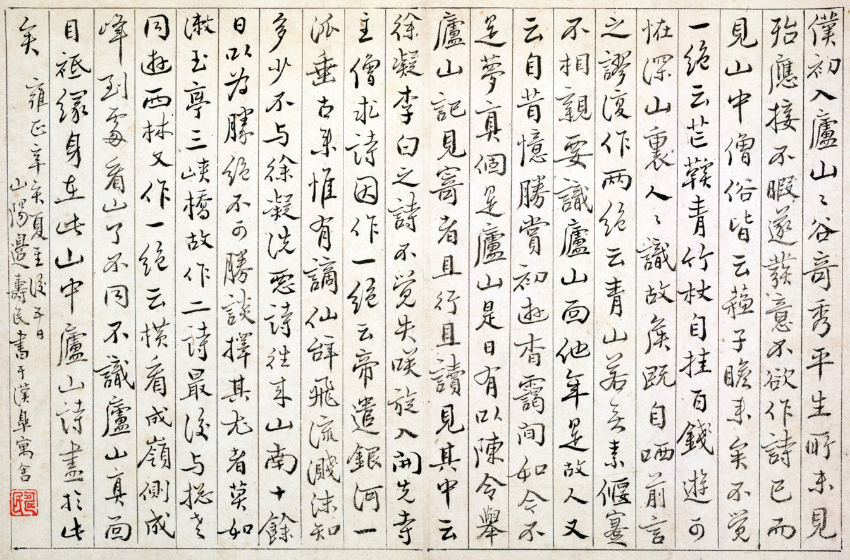 僕初入廬山〻谷奇秀平生所未見
殆應接不暇遂發意不欲作詩已而
見山中僧俗皆云蘓子瞻来矣不覺
一絶云芒鞵青竹杖自挂百錢遊可
怪深山裏人〻識故矦既自哂前言
之謬復作兩絶云青山若無素偃蹇
不相親要識廬山面他年是故人又
云自昔憶勝賞初遊杳靄間如今不
是夢真個是廬山是日有以陳令舉
廬山記見寄者且行且讀見其中云
徐凝李白之詩不覺失咲旋入開先寺
主僧求詩因作一絶云帝遣銀河一
派垂古来惟有謫仙辭飛流濺沫知
多少不与徐凝洗惡詩往来山南十餘
日以為勝絶不可勝談擇其尤者莫如
漱玉亭三峽橋故作二詩最後与摠老
同遊西林又作一絶云橫看成嶺側成
峰到處看山了不同不識廬山真面
目祗緣身在此山中廬山詩盡於此
矣 雍正辛亥夏至後五日
山陽邊壽民書于漢臯寓舍